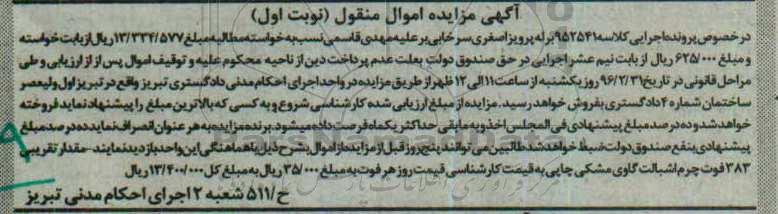 آگهی مزایده اموال منقول (نوبت اول)
در خصوص پرونده اجرایی کلاسه ۹۵۲۵۴۱ برله پرویز اصغری سرخابی بر علیه مهدی قاسمی نسب به خواسته مطالبه مبلغ ۱۳/۳۳۴/۵۷۷ ریال از بابت خواسته
و مبلغ ۶۲۵/۰۰۰ ریال از بابت نیم عشر اجرایی در حق صندوق دولت بعلت عدم پرداخت دین از ناحیه محکوم علیه و توقیف اموال پس از ارزیابی و طی
مراحل قانونی در تاریخ ۹۶/۲/۳۱ روز یکشنبه از ساعت ۱۱ الی ۱۲ ظهر از طریق مزایده در واحد اجرای احکام مدنی دادگستری تبریز واقع در تبریز اول ولیعصر
ساختمان شماره ۴ دادگستری بفروش خواهد رسید. مزایده از مبلغ ارزیابی شده کارشناسی شروع و به کسی که بالاترین مبلغ را پیشنهاد نماید فروخته
خواهد شد و ده درصد مبلغ پیشنهادی فی المجلس اخذ و به مابقی حداکثر یکماه فرصت داده میشود. برنده مزایده به هر عنوان انصراف نماید ده درصد مبلغ
پیشنهادی بنفع صندوق دولت ضبط خواهد شد طالبین می توانند پنج روز قبل از مزایده از اموال بشرح ذیل با هماهنگی این واحد بازدید نمایند - مقدار تقریبی
۳۸۳ فوت چرم اشبالت گاوی مشکی چاپی به قیمت کارشناسی قیمت روز هر فوت به مبلغ ۳۵/۰۰۰ ریال به مبلغ کل ۱۳/۴۰۰/۰۰۰ ریال
ح/۵۱۱ شعبه ۲ اجرای احکام مدنی تبریز